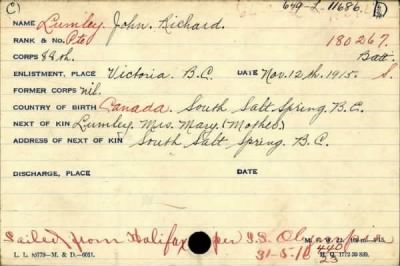 C 649-L-11686.
NAME Lumley, John, Richard.
RANK & No. Pte 180267.
CORPS 88th. Batt.
ENLISTMENT, PLACE Victoria B.C. DATE Nov. 12th. 1915. S.
FORMER CORPS nil.
COUNTRY OF BIRTH Canada. South Salt Spring, B.C.
NEXT OF KIN Lumley, Mrs. Mary (Mother)
ADDRESS OF NEXT OF KIN South Salt Spring, B.C.
DISCHARGE, PLACE DATE
Sailed from Halifax per S.S. Olympic
31-5-16 440
23
L. L. 85779—M. & D.—6051.